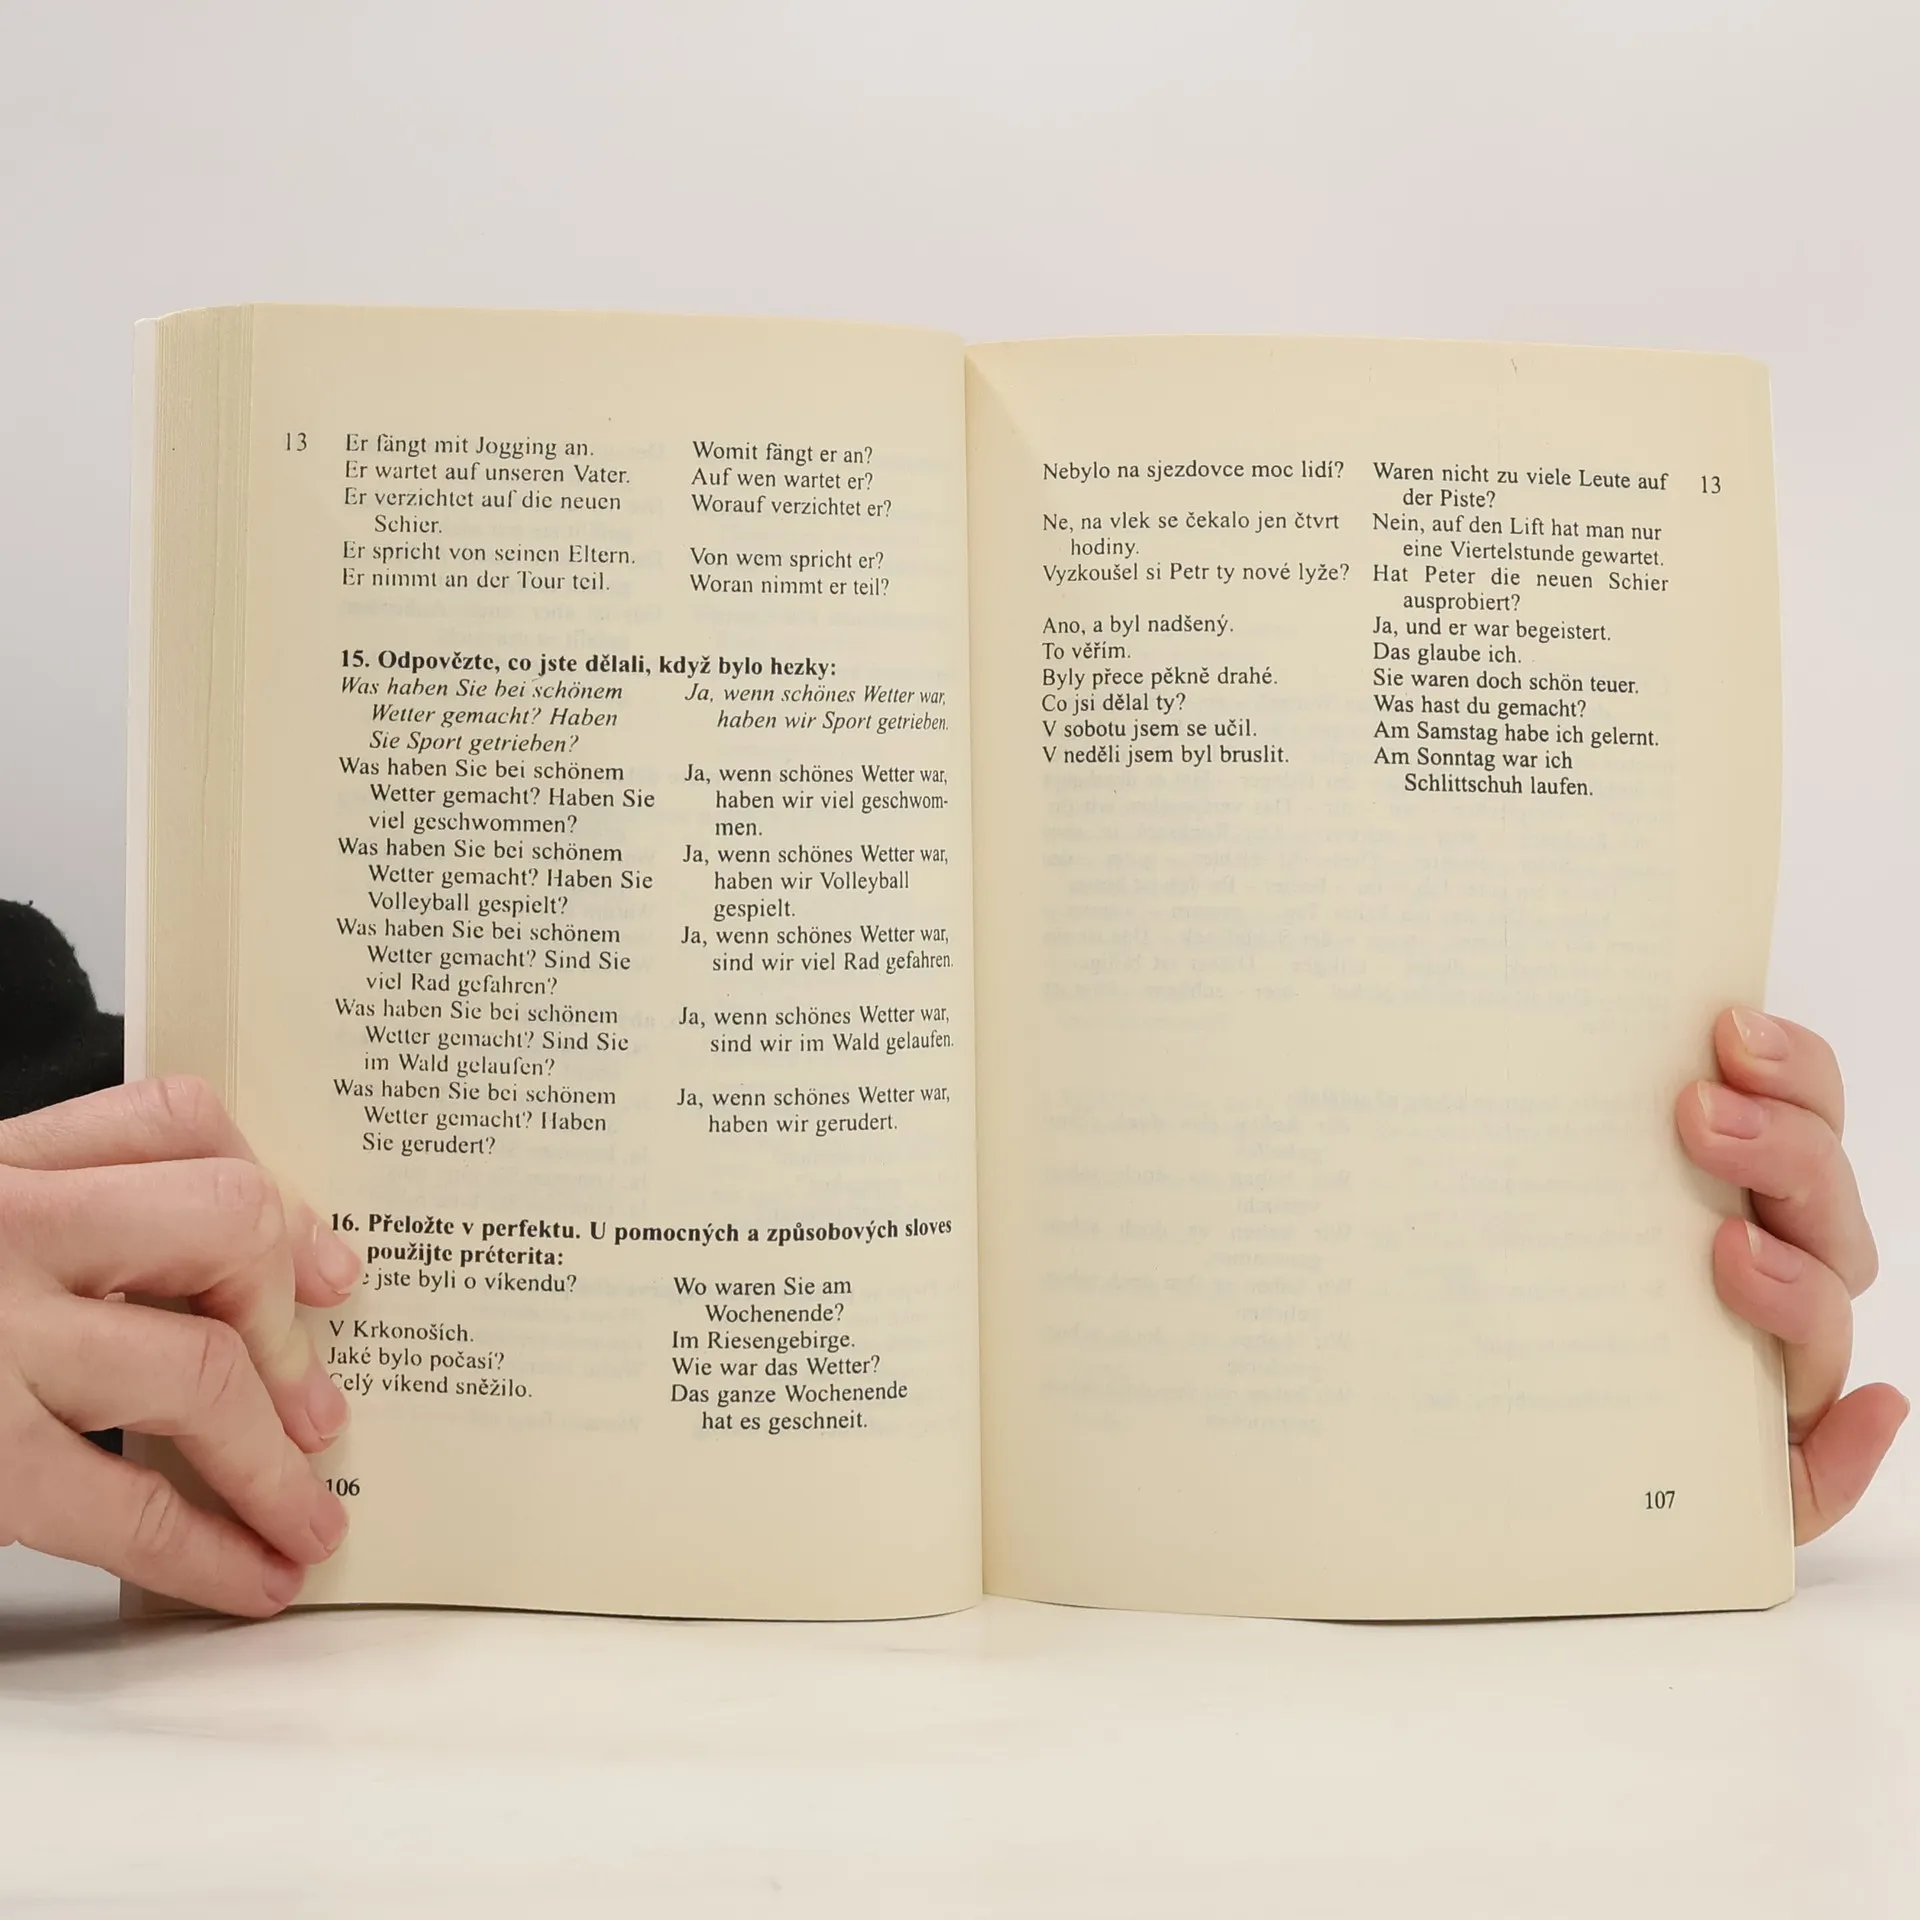 13
Er fängt mit Jogging an.
Womit fängt er an?
Er wartet auf unseren Vater.
Auf wen wartet er?
Er verzichtet auf die neuen
Schier.
Worauf verzichtet er?
Er spricht von seinen Eltern.
Von wem spricht er?
Er nimmt an der Tour teil.
Woran nimmt er teil?
15. Odpovězte, co jste dělali, když bylo hezky:
Was haben Sie bei schönem
Wetter gemacht? Haben
Sie Sport getrieben?
Ja, wenn schönes Wetter war,
haben wir Sport getrieben.
Was haben Sie bei schönem
Wetter gemacht? Haben Sie
viel geschwommen?
Ja, wenn schönes Wetter war,
haben wir viel geschwom-
men.
Was haben Sie bei schönem
Wetter gemacht? Haben Sie
Volleyball gespielt?
Ja, wenn schönes Wetter war,
haben wir Volleyball
gespielt.
Was haben Sie bei schönem
Wetter gemacht? Sind Sie
viel Rad gefahren?
Ja, wenn schönes Wetter war,
sind wir viel Rad gefahren.
Was haben Sie bei schönem
Wetter gemacht? Sind Sie
im Wald gelaufen?
Ja, wenn schönes Wetter war,
sind wir im Wald gelaufen.
Was haben Sie bei schönem
Wetter gemacht? Haben
Sie gerudert?
Ja, wenn schönes Wetter war,
haben wir gerudert.
16. Přeložte v perfektu. U pomocných a způsobových sloves
použijte préterita:
jste byli o víkendu?
Wo waren Sie am
Wochenende?
V Krkonoších.
Im Riesengebirge.
Jaké bylo počasí?
Wie war das Wetter?
Celý víkend sněžilo.
Das ganze Wochenende
hat es geschneit.
106
13
Nebylo na sjezdovce moc lidí?
Waren nicht zu viele Leute auf
der Piste?
Ne, na vlek se čekalo jen čtvrt
hodiny.
Nein, auf den Lift hat man nur
eine Viertelstunde gewartet.
Vyzkoušel si Petr ty nové lyže?
Hat Peter die neuen Schier
ausprobiert?
Ano, a byl nadšený.
Ja, und er war begeistert.
To věřím.
Das glaube ich.
Byly přece pěkně drahé.
Sie waren doch schön teuer.
Co jsi dělal ty?
Was hast du gemacht?
V sobotu jsem se učil.
Am Samstag habe ich gelernt.
V neděli jsem byl bruslit.
Am Sonntag war ich
Schlittschuh laufen.
107